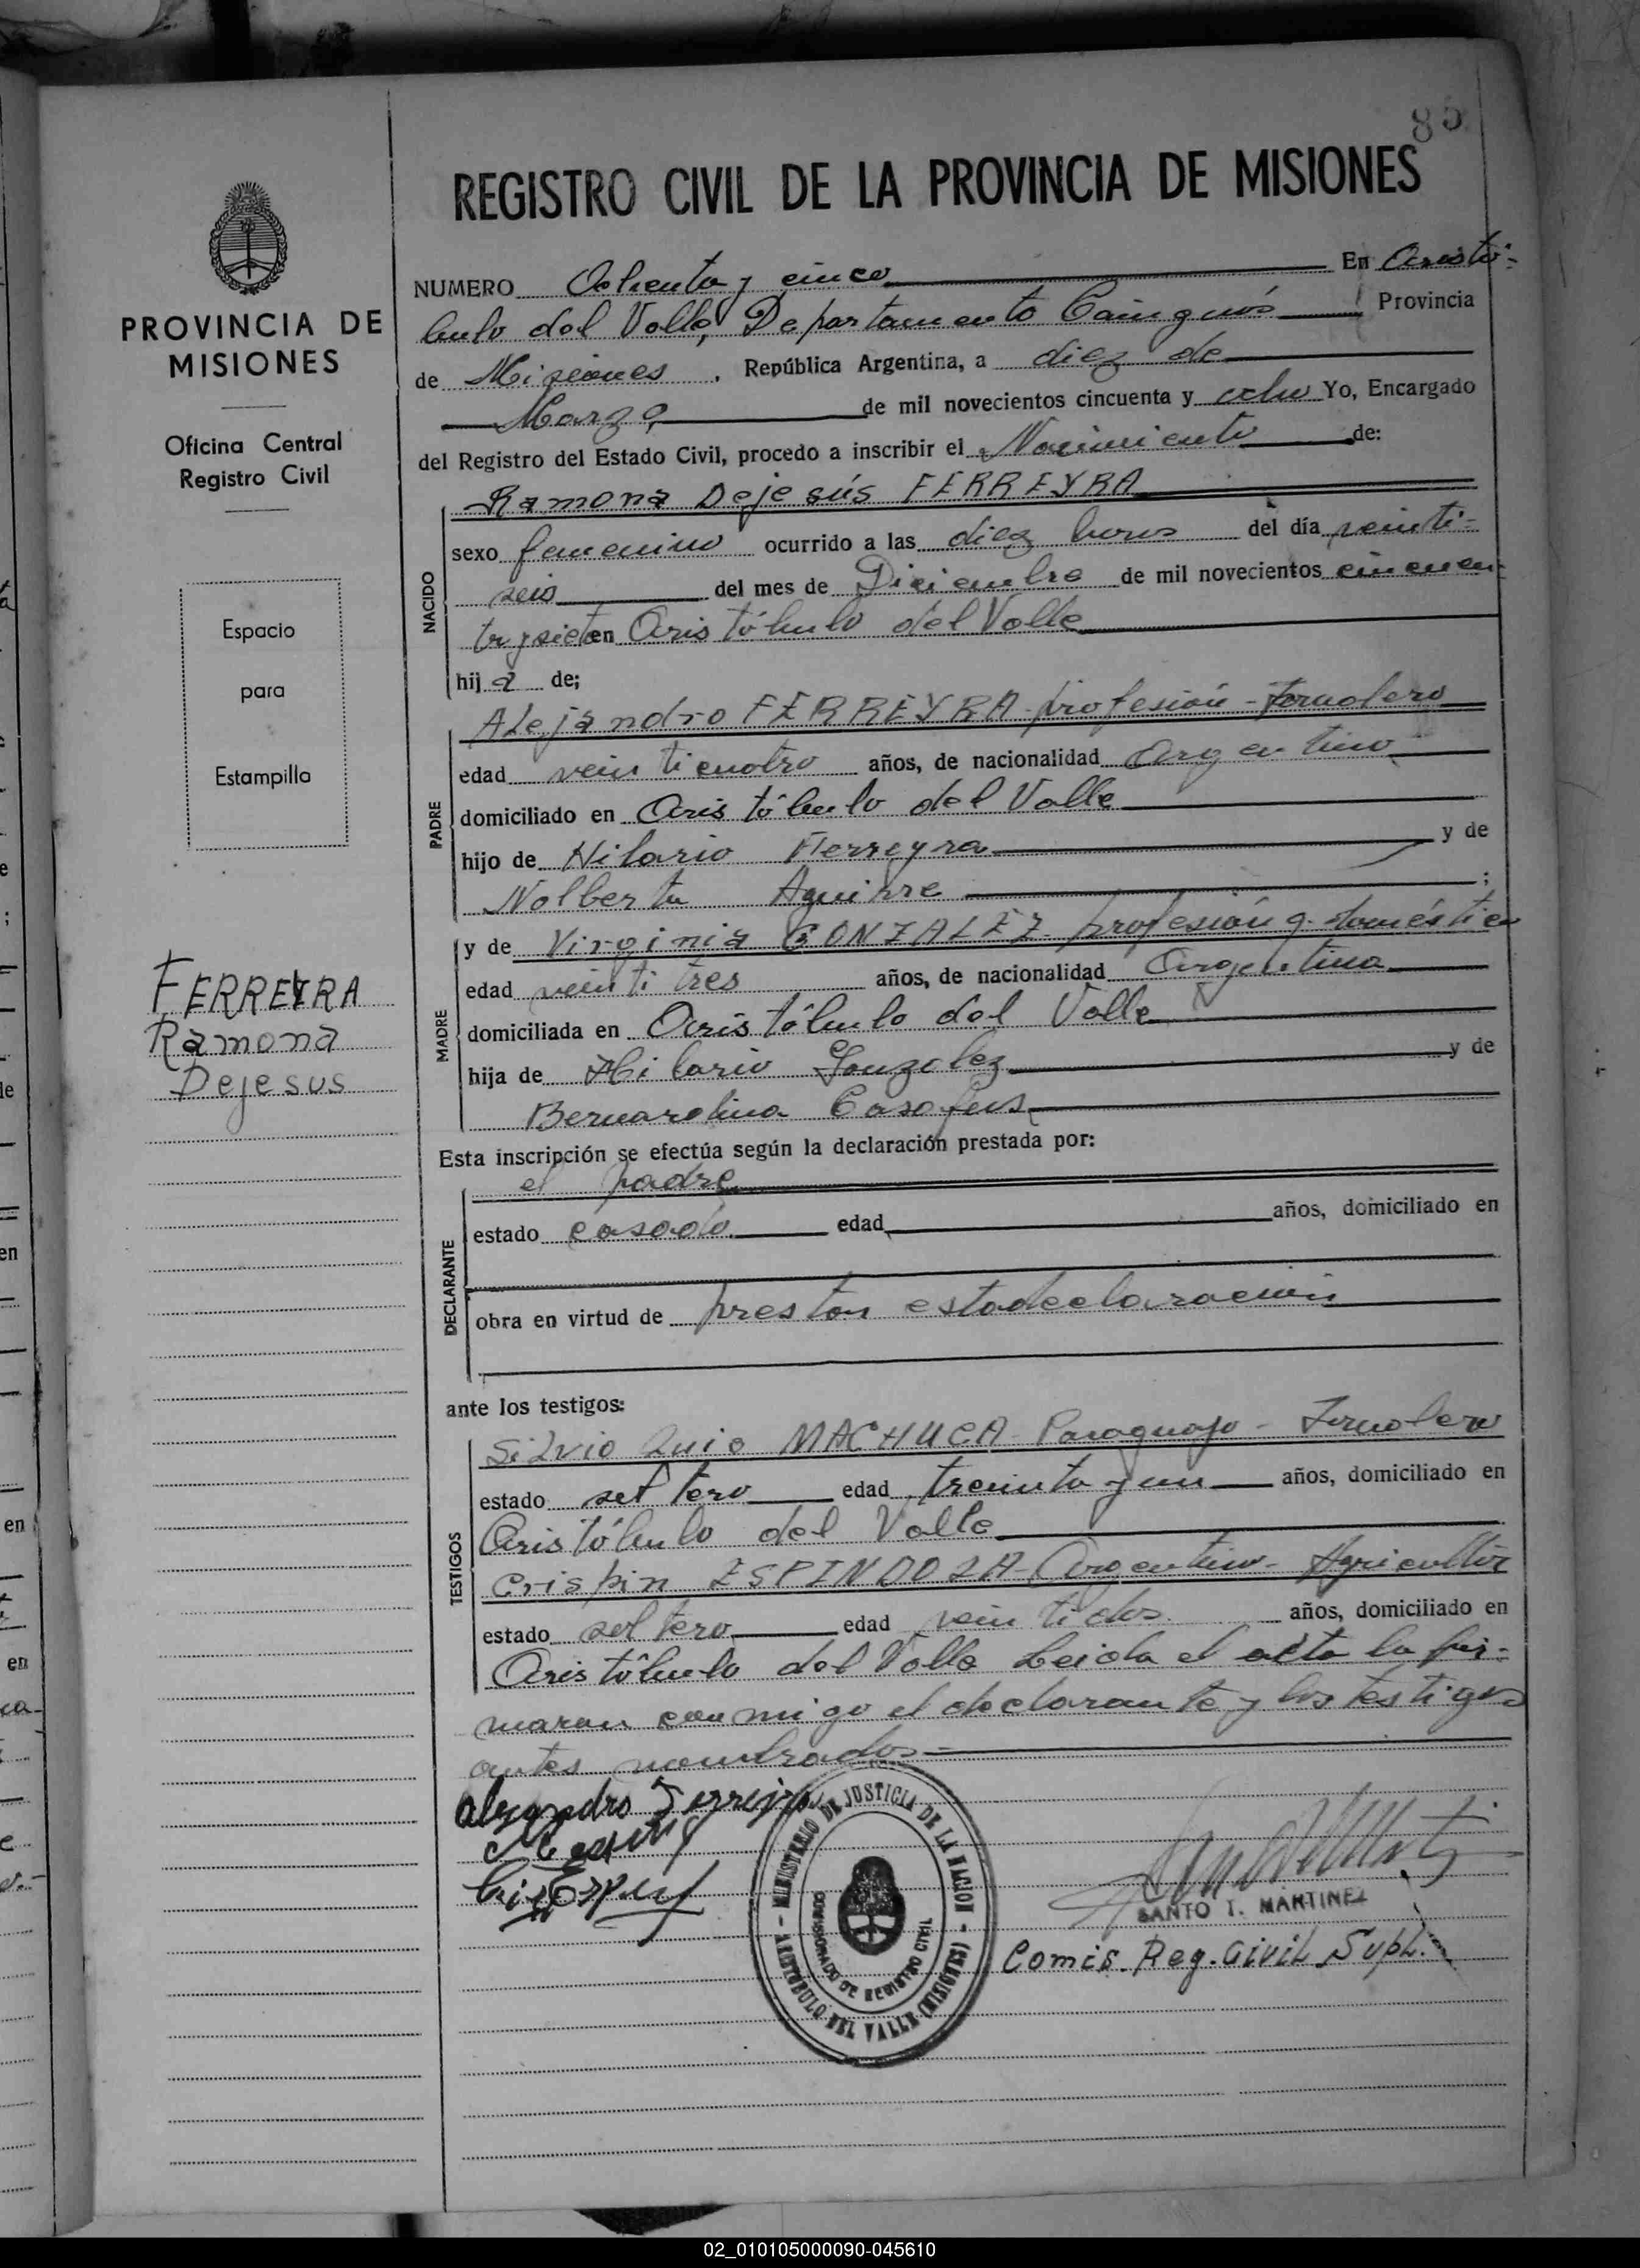 85
REGISTRO CIVIL DE LA PROVINCIA DE MISIONES
PROVINCIA DE
MISIONES
Oficina Central
Registro Civil
Espacio
para
Estampilla
FERREYRA
Ramona
Dejesus
NUMERO Ochenta y cinco En Aristó-
bulo del Valle, Departamento Cainguás Provincia
de Misiones, República Argentina, a diez de
Marzo de mil novecientos cincuenta y ocho Yo, Encargado
del Registro del Estado Civil, procedo a inscribir el Nacimiento de:
NACIDO
Ramona Dejesús FERREYRA
sexo femenino ocurrido a las diez horas del día veinti-
seis del mes de Diciembre de mil novecientos cincuen-
ta y siete en Aristóbulo del Valle
hija de;
PADRE
Alejandro FERREYRA - profesión - Jornalero
edad veinticuatro años, de nacionalidad Argentino
domiciliado en Aristóbulo del Valle
hijo de Hilario Ferreyra y de
Nolberta Aguirre ;
MADRE
y de Virginia GONZALEZ profesión q. doméstica
edad veintitres años, de nacionalidad Argentina
domiciliada en Aristóbulo del Valle
hija de Hilario Gonzalez y de
Bernardina
Esta inscripción se efectúa según la declaración prestada por:
DECLARANTE
el padre
estado casado edad años, domiciliado en
obra en virtud de prestar esta declaración
ante los testigos:
TESTIGOS
Silvio Luis MACHUCA - Paraguayo - Jornalero
estado soltero edad treinta y un años, domiciliado en
Aristóbulo del Valle
Crispin ESPINDOLA - Argentino - Agricultor
estado soltero edad veintidos años, domiciliado en
Aristóbulo del Valle Leida el acta la fir-
maron conmigo el declarante y los testigos
antes nombrados
Alejandro Ferreira
MINISTERIO DE JUSTICIA DE LA NACION
COMISIONADO DE REGISTRO CIVIL
ARISTOBULO DEL VALLE (MISIONES)
SANTO T. MARTINEZ
Comis. Reg. Civil Supl.
02_010105000090-045610